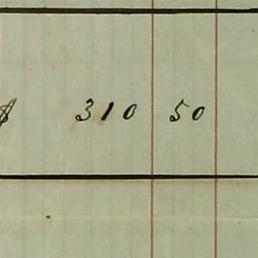 $ 310 50